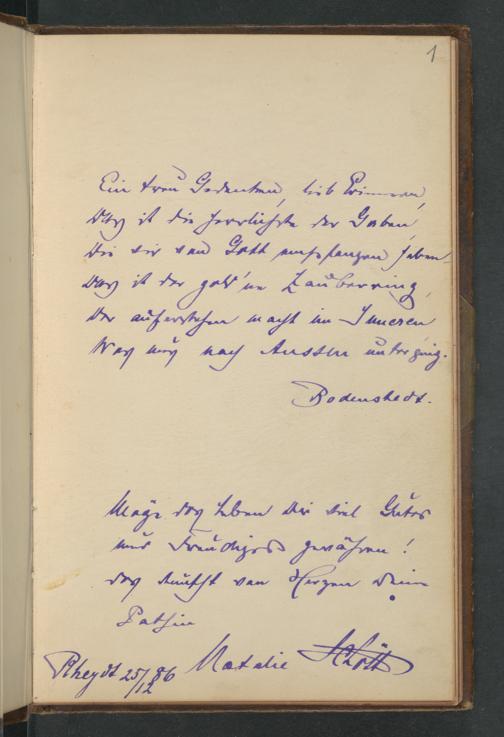 1
Ein treu Gedenken, lieb Erinnern,
Das ist die herrlichste der Gaben,
Die wir von Gott empfangen haben
Das ist der gold'ne Zauberring,
Der auferstehen macht im Inneren
Was uns nach Aussen unterging.
Bodenstedt.
Möge das Leben Dir viel Gutes
und Freudiges gewähren!
das wünscht von Herzen Deine
Pathin
Rheydt 25/12 86 Natalie Schött